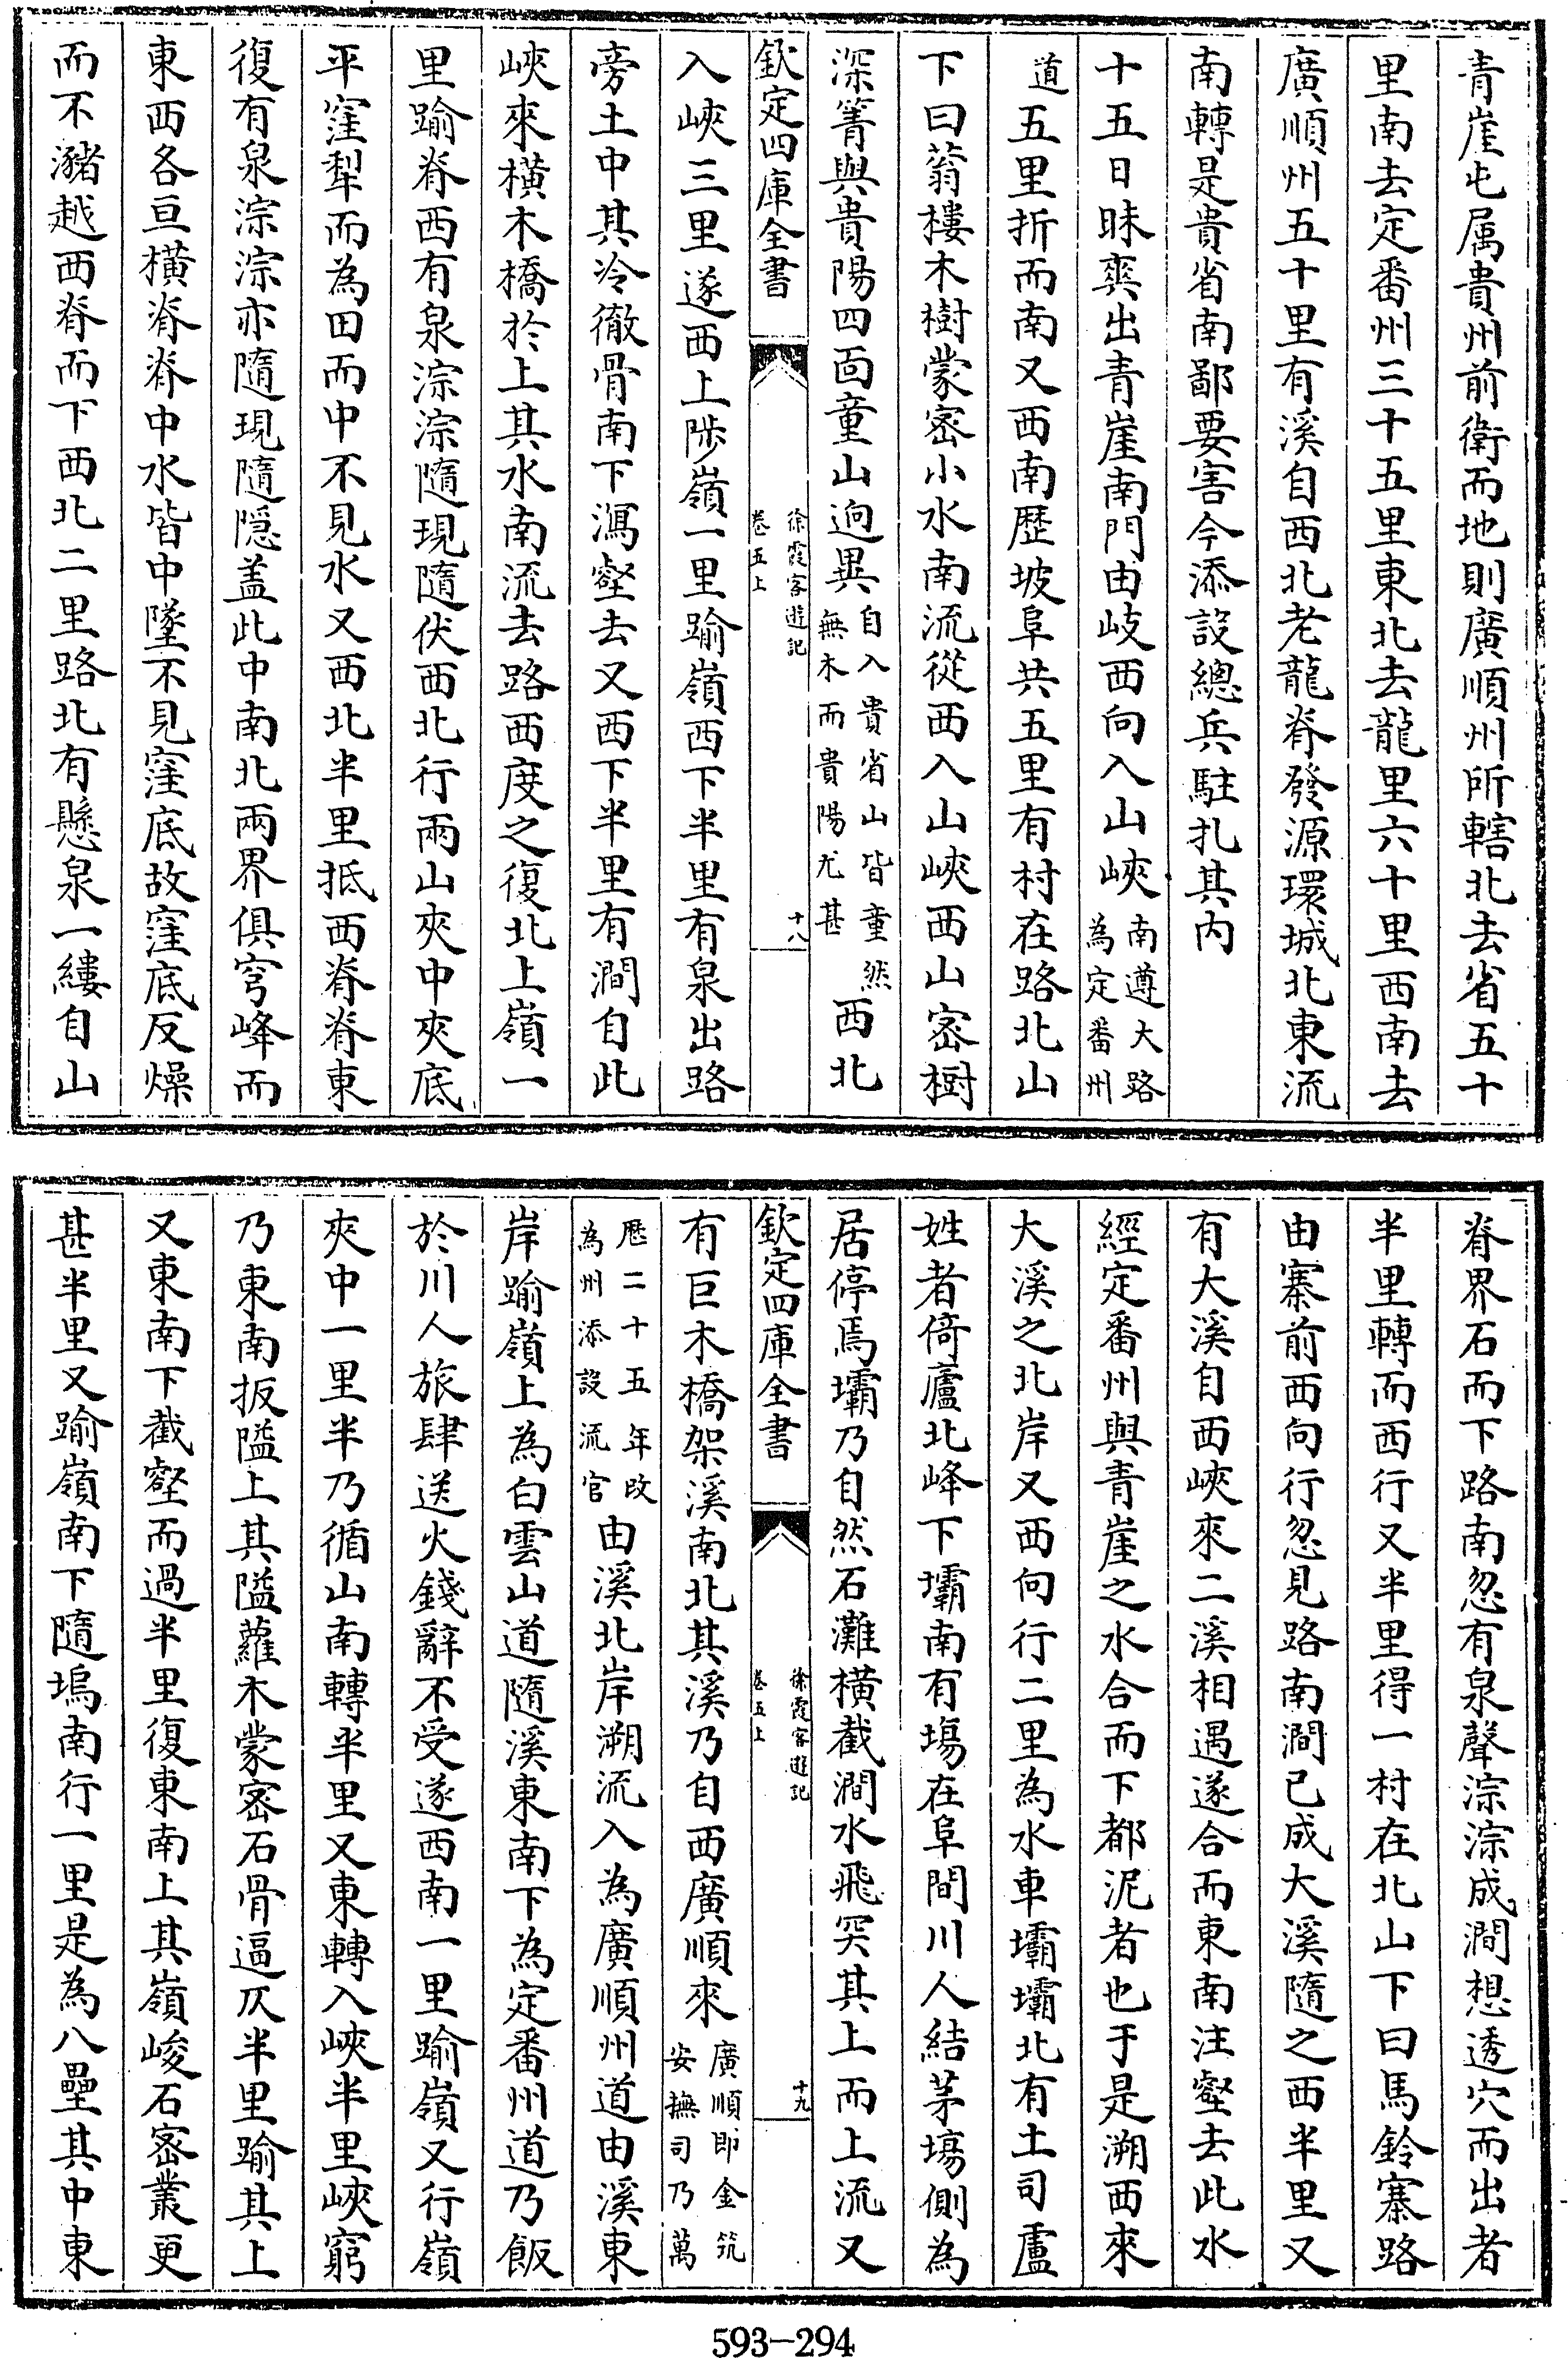 青崖屯属貴州前衛而地則廣順州所轄北去省五十
里南去定番州三十五里東北去龍里六十里西南去
廣順州五十里有溪自西北老龍脊發源環城北東流
南轉是貴省南鄙要害今添設總兵駐扎其内
十五日昧爽出青崖南門由岐西向入山峽南遵大路為定番州
道五里折而南又西南歴坡阜共五里有村在路北山
下曰蓊樓木樹蒙宻小水南流從西入山峽西山宻樹
深箐與貴陽四面童山逈異自入貴省山皆童然無木而貴陽尤甚西北
欽定四庫全書
徐霞客遊記
卷五上
十八
入峽三里遂西上陟嶺一里踰嶺西下半里有泉出路
旁土中其冷徹骨南下瀉壑去又西下半里有澗自此
峽來横木橋於上其水南流去路西度之復北上嶺一
里踰脊西有泉淙淙隨現隨伏西北行兩山夾中夾底
平窪犁而為田而中不見水又西北半里抵西脊脊東
復有泉淙淙亦隨現隨隱盖此中南北兩界俱穹峰而
東西各亘横脊脊中水皆中墜不見窪底故窪底反燥
而不瀦越西脊而下西北二里路北有懸泉一縷自山
脊界石而下路南忽有泉聲淙淙成澗想透穴而出者
半里轉而西行又半里得一村在北山下曰馬鈴寨路
由寨前西向行忽見路南澗已成大溪隨之西半里又
有大溪自西峽來二溪相遇遂合而東南注壑去此水
經定番州與青崖之水合而下都泥者也于是溯西來
大溪之北岸又西向行二里為水車壩壩北有土司盧
姓者倚廬北峰下壩南有塲在阜間川人結茅塲側為
居停焉壩乃自然石灘横截澗水飛突其上而上流又
欽定四庫全書
徐霞客遊記
卷五上
十九
有巨木橋架溪南北其溪乃自西廣順來廣順即金筑安撫司乃萬
歴二十五年改為州添設流官由溪北岸溯流入為廣順州道由溪東
岸踰嶺上為白雲山道隨溪東南下為定番州道乃飯
於川人旅肆送火錢辭不受遂西南一里踰嶺又行嶺
夾中一里半乃循山南轉半里又東轉入峽半里峽窮
乃東南扳隘上其隘蘿木蒙宻石骨逼仄半里踰其上
又東南下截壑而過半里復東南上其嶺峻石宻叢更
甚半里又踰嶺南下隨塢南行一里是為八壘其中東
593-294